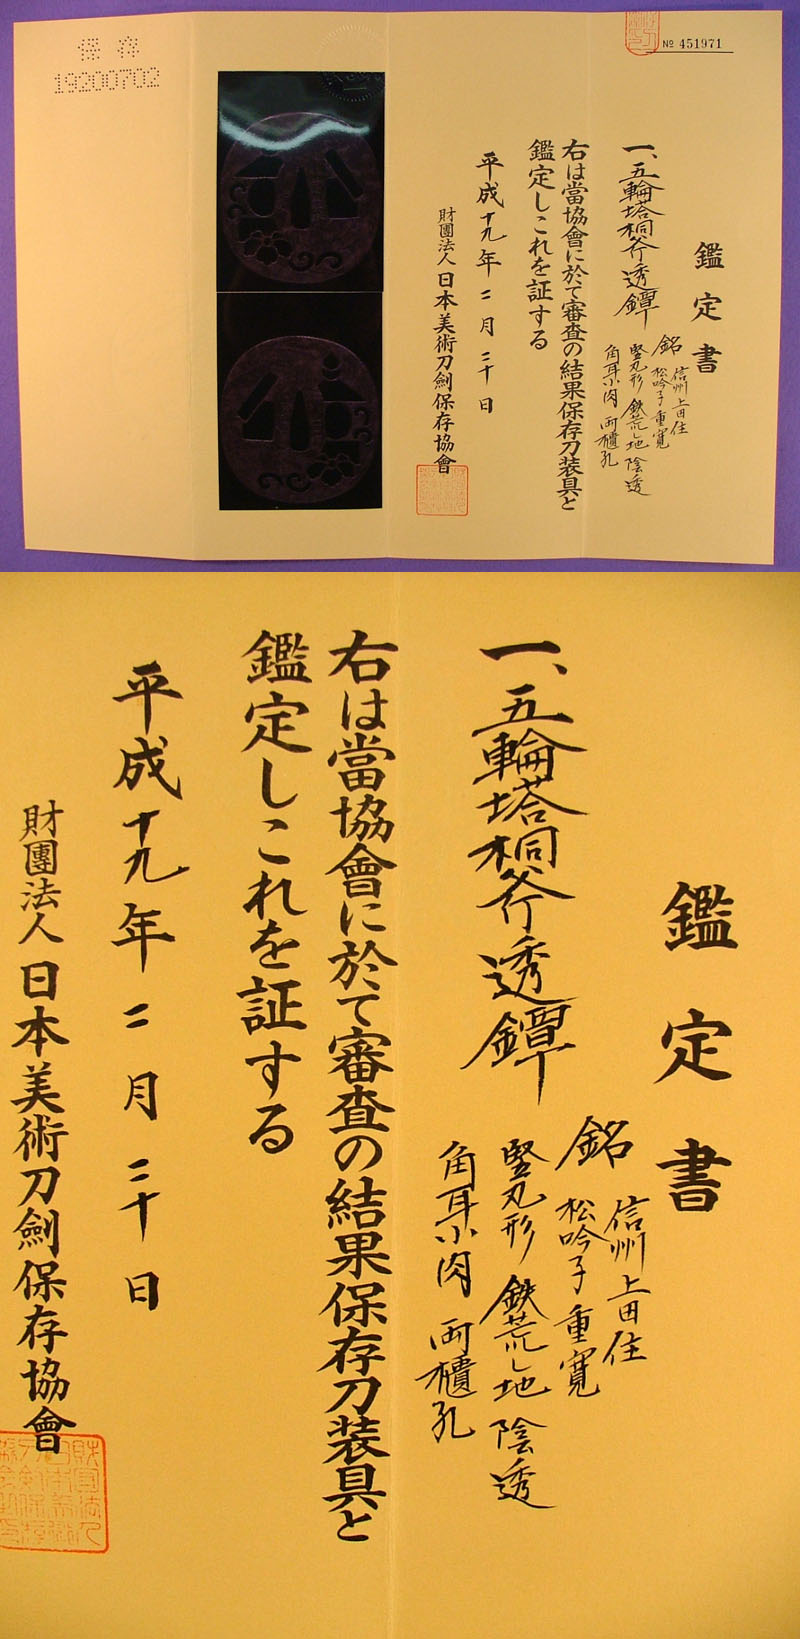 保存
19200702
№ 451971
鑑定書
一、五輪塔桐斧透鐔
銘 信州上田住
松吟子重寛
竪丸形 鉄荒し地 陰透
角耳小肉 両櫃孔
右は當協會に於て審査の結果保存刀装具と
鑑定しこれを証する
平成十九年二月二十日
財團法人日本美術刀劍保存協會
鑑定書
一、五輪塔桐斧透鐔
銘 信州上田住
松吟子重寛
竪丸形 鉄荒し地 陰透
角耳小肉 両櫃孔
右は當協會に於て審査の結果保存刀装具と
鑑定しこれを証する
平成十九年二月二十日
財團法人日本美術刀劍保存協會